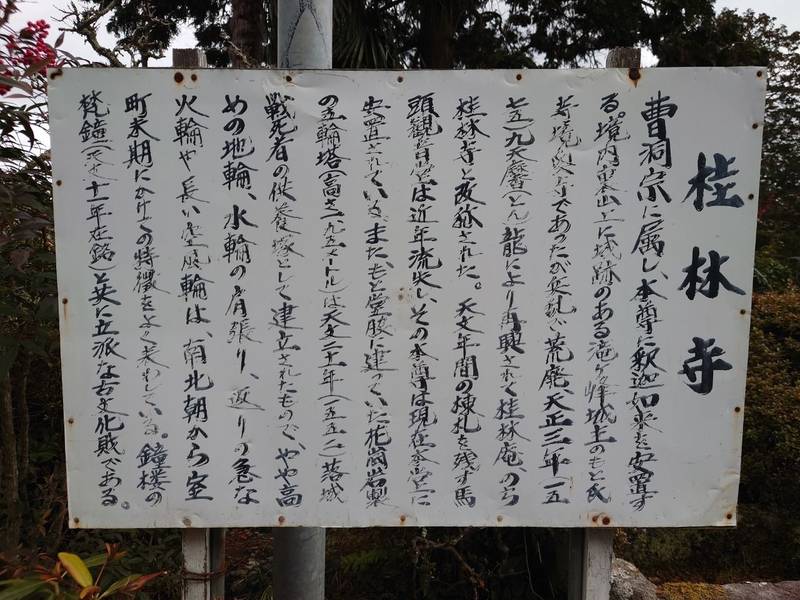 桂林寺
曹洞宗に属し、本尊に釈迦如来を安置す
る。境内裏山上に城跡のある滝ヶ峰城主のもと氏
寺境奥寺であったが兵乱で荒廃、天正三年(一五
七五)九天暦(とん)龍により再興されて桂林庵、のち
桂林寺と改称された。天文年間の棟札を残す馬
頭観音堂は近年流失し、その本尊は現在本堂に
安置されている。また、もと堂脇に建っていた花崗岩製
の五輪塔(高さ一、九五メートル)は天文二十一年(一五五二)落城
戦死者の供養塔として建立されたもので、やや高
めの地輪、水輪の肩張り、返りの急な
火輪や長い空風輪は、南北朝から室
町末期にかけての特徴をよく表わしている。鐘楼の
梵鐘(天文十一年在銘)と共に立派な古文化財である。